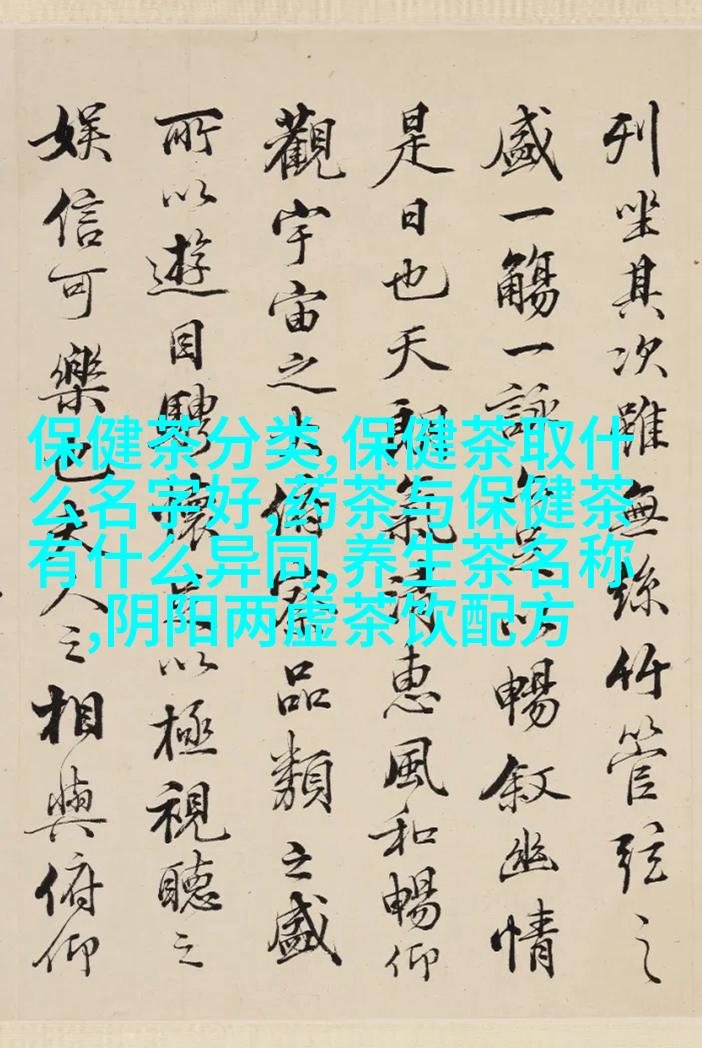 列坐其次雖無絲竹管弦之
盛一觴一詠亦足以暢叙幽情
是日也天朗氣清惠風和暢仰
觀宇宙之大俯察品類之盛
所以遊目騁懷足以極視聽之
娛信可樂也夫人之相與俯仰
保健茶分类,保健茶取什
么名字好,药茶与保健茶
有什么异同,养生茶名称
,阴阳两虚茶饮配方